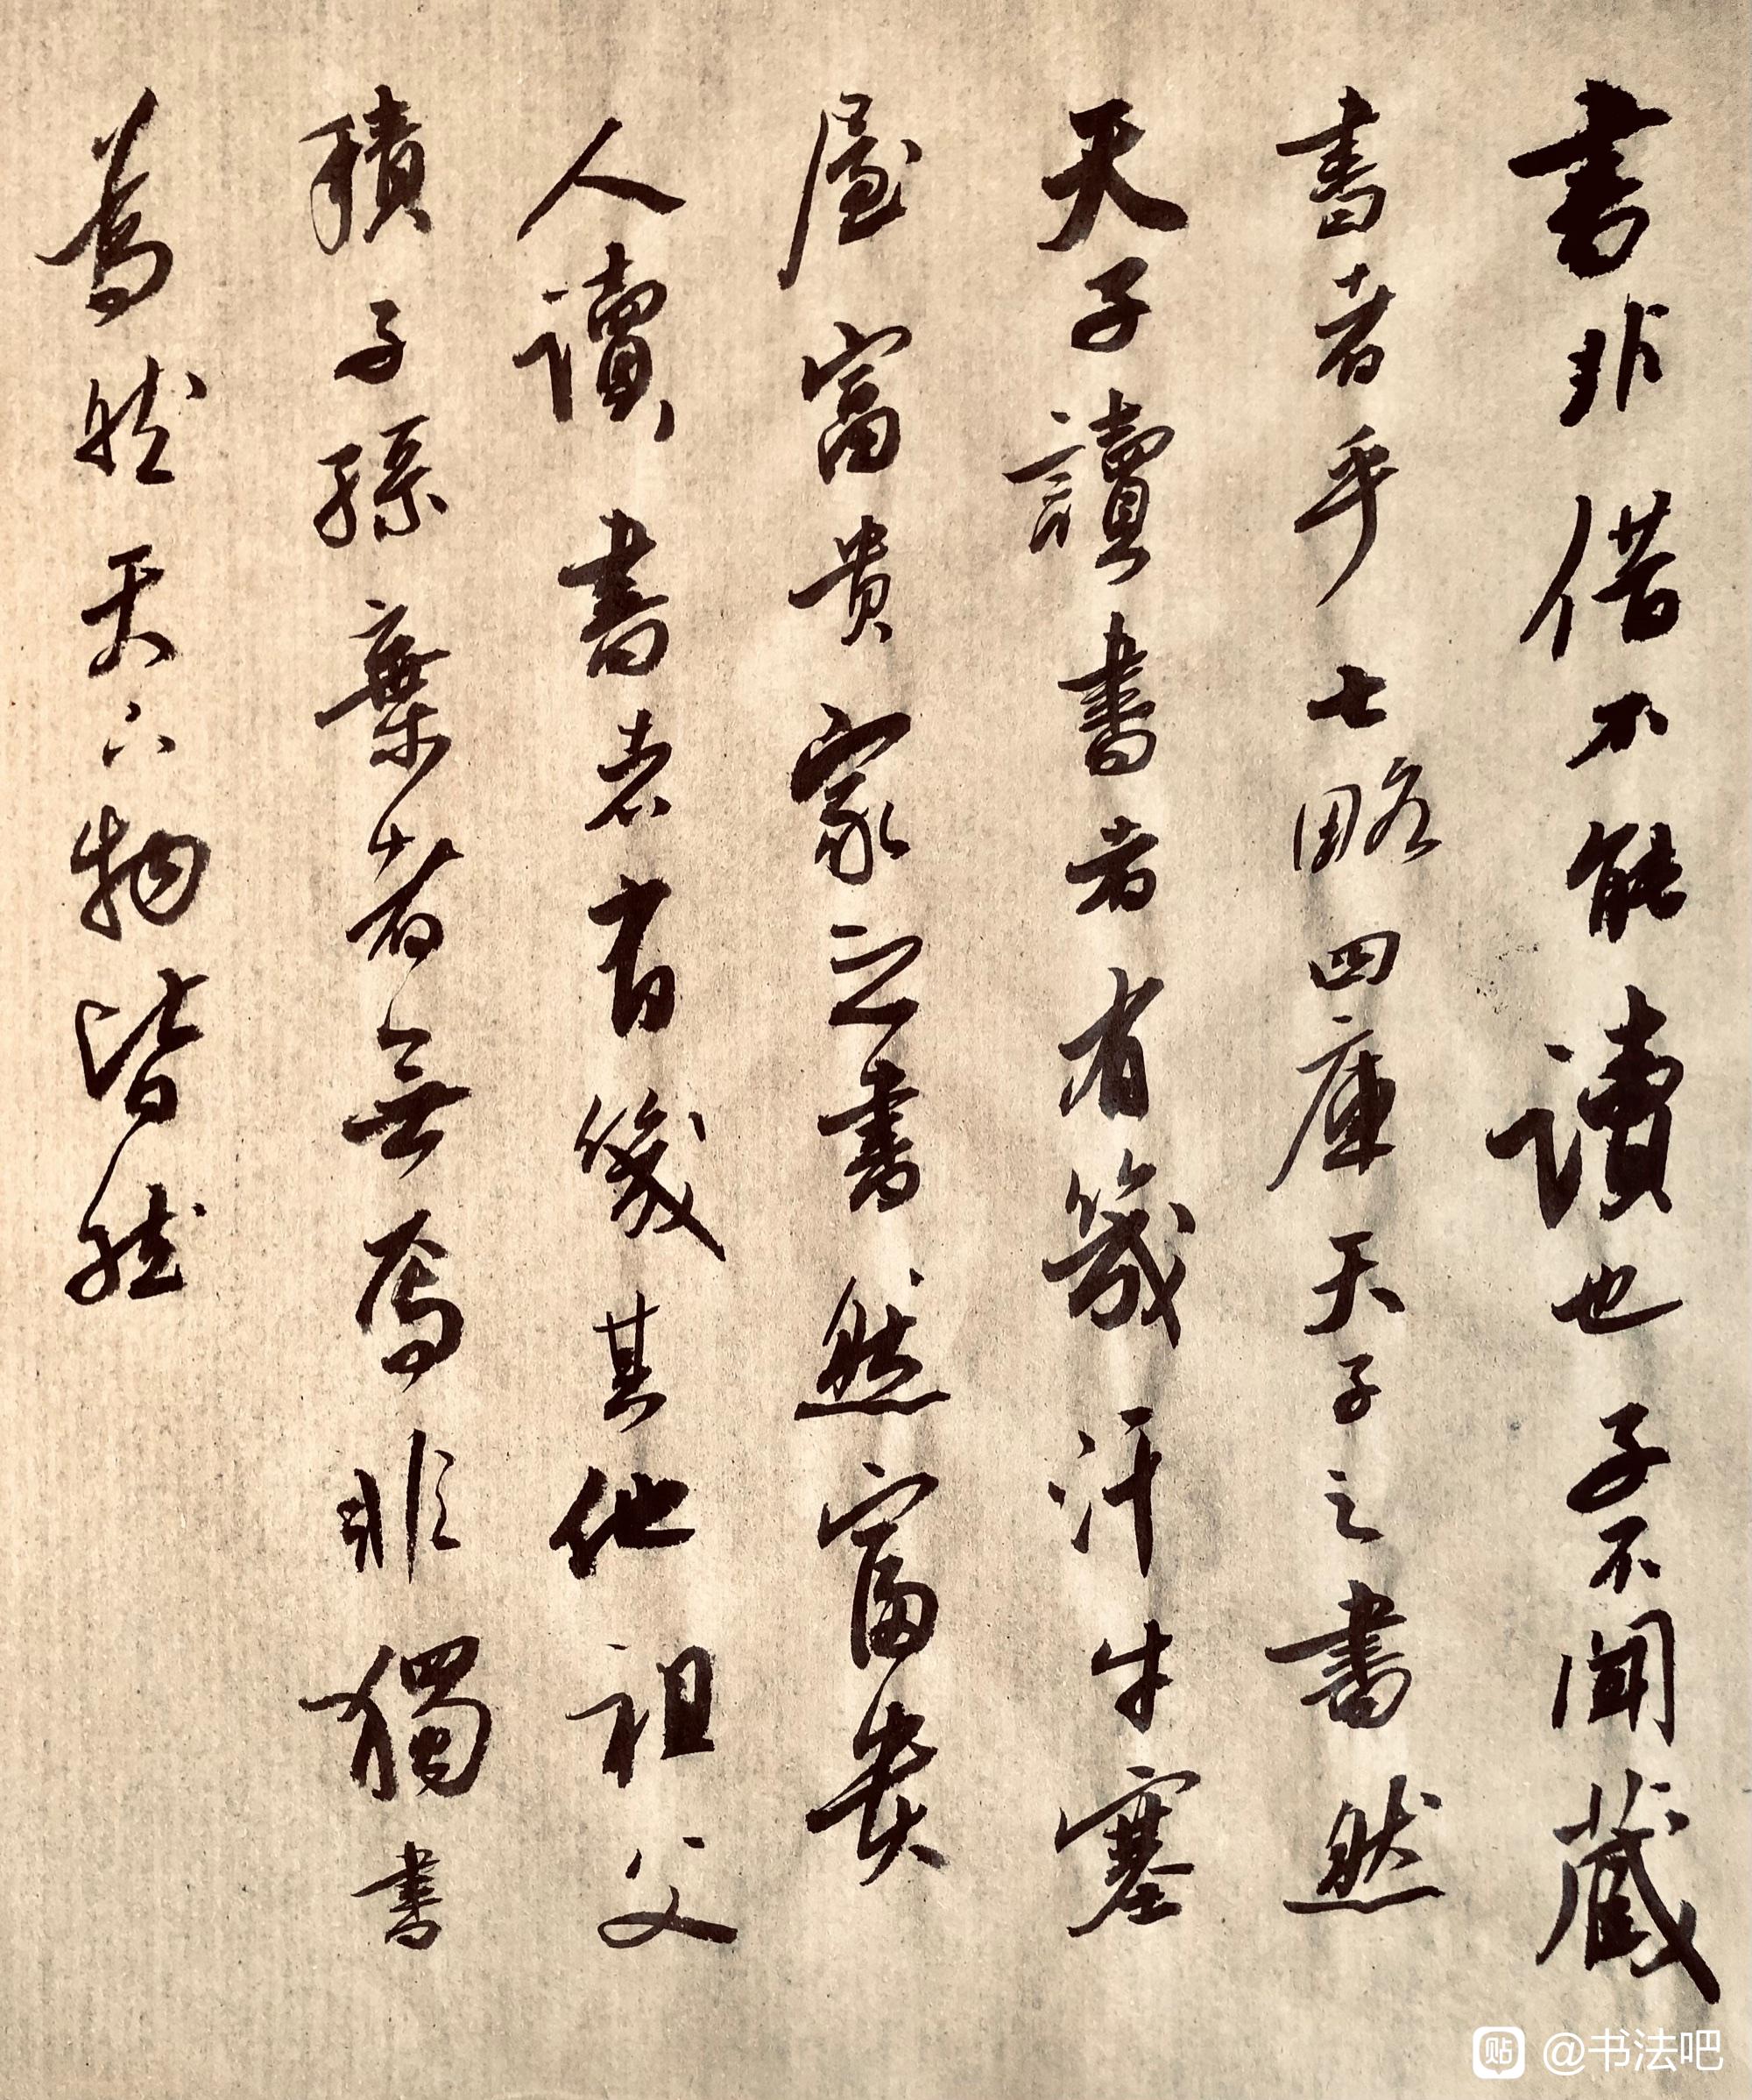 書非借不能讀也子不聞藏
書者乎七略四庫天子之書然
天子讀書者有幾汗牛塞
屋富貴家之書然富貴
人讀書者有幾其他祖父
積子孫棄者無焉非獨書
為然天下物皆然
貼 @书法吧